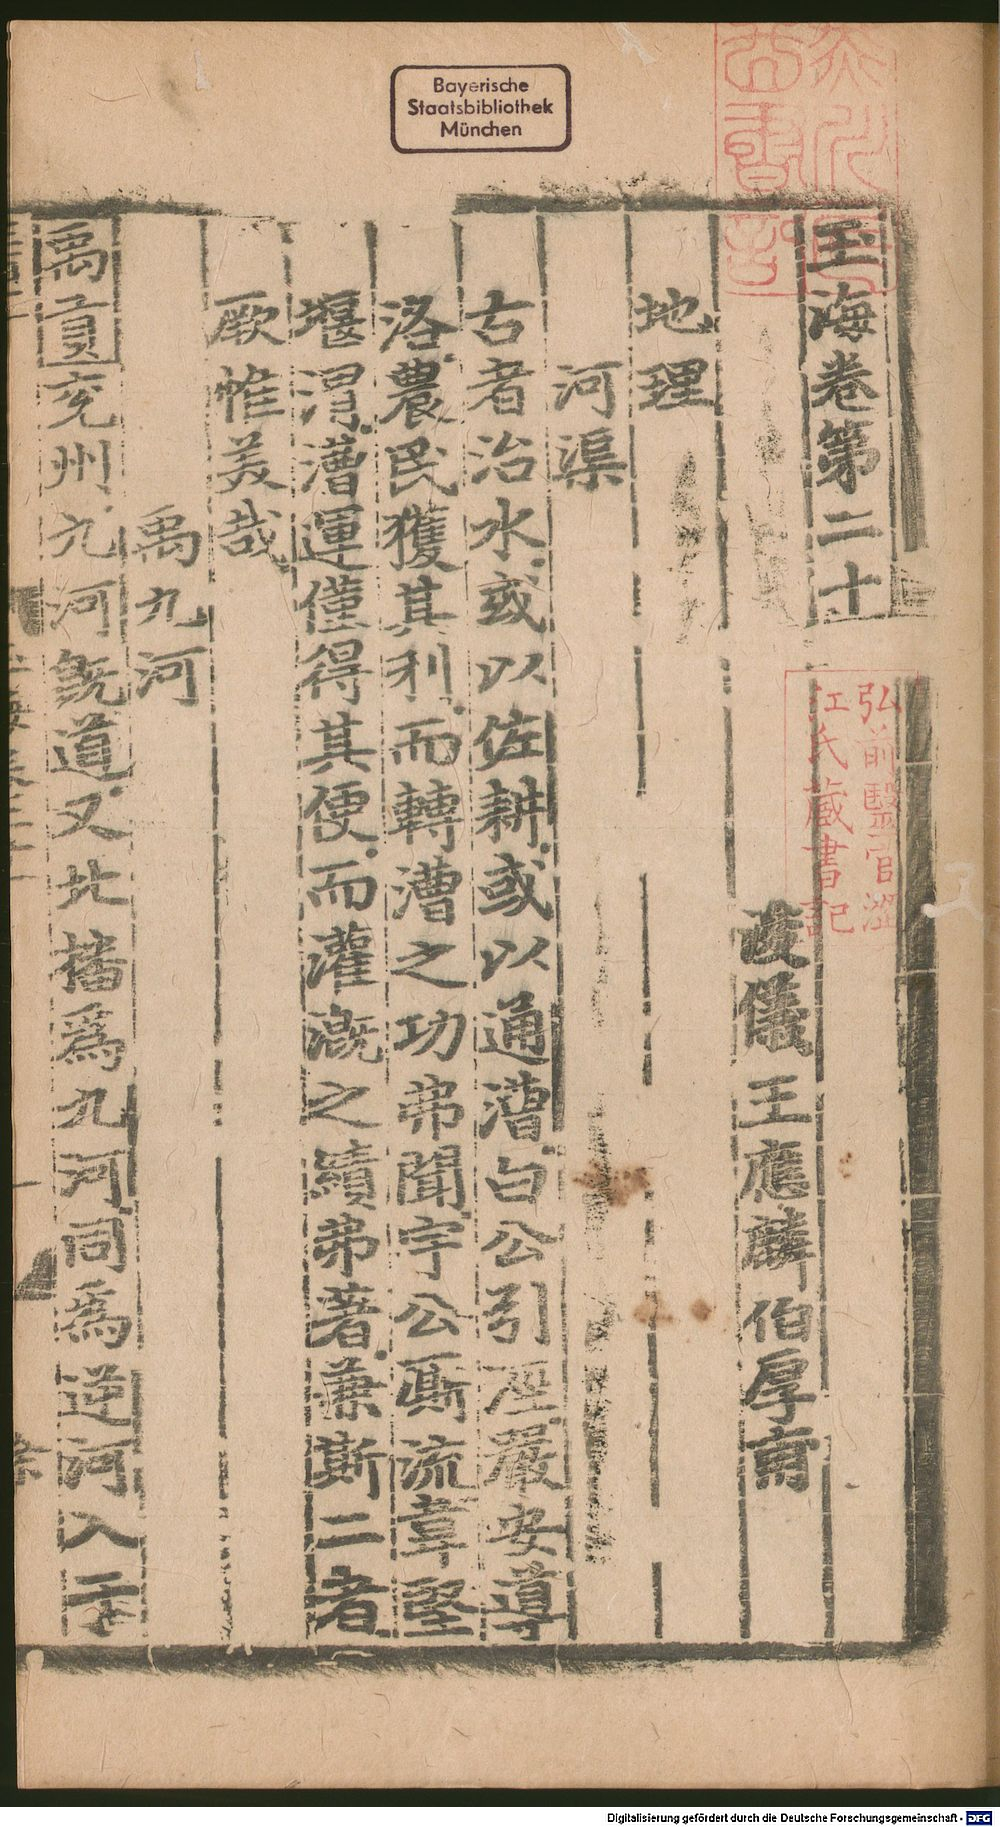 Bayerische
Staatsbibliothek
München
玉海卷第二十
弘前醫官澀
江氏藏書記
浚儀王應麟伯厚甫
地理
河渠
古者治水或以佐耕或以通漕白公引涇嚴安導
洛農民獲其利而轉漕之功弗聞宇公厮流韋堅
堰渭漕運僅得其便而灌溉之績弗著兼斯二者
厥惟美哉
禹九河
禹貢兖州九河既道又北播爲九河同爲逆河入于
Digitalisierung gefördert durch die Deutsche Forschungsgemeinschaft - DFG